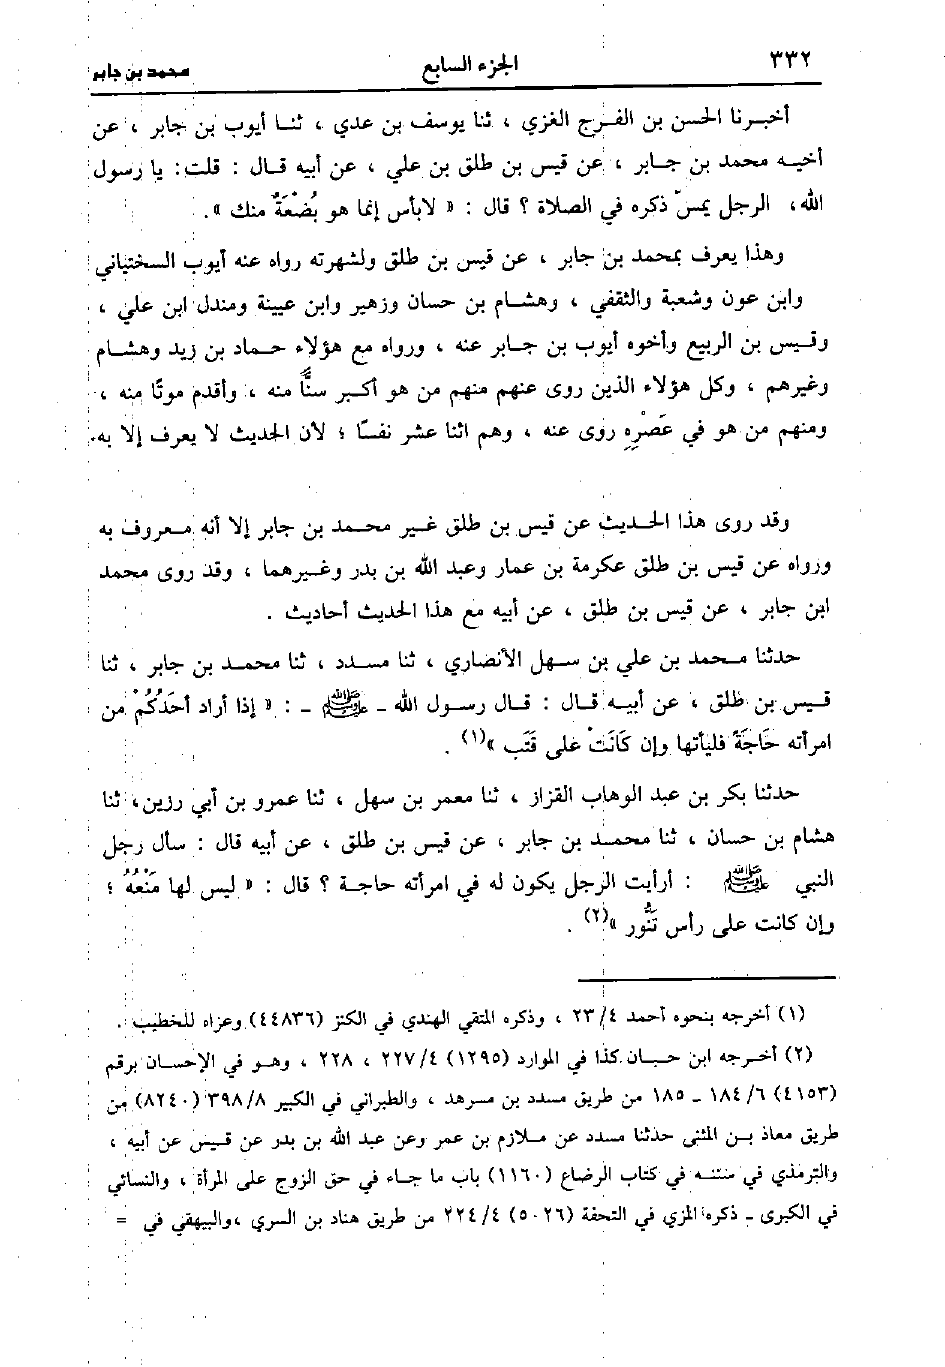 ٣٣٢ الجزء السابع محمد بن جابر
أخبرنا الحسن بن الفرج الغزي ، ثنا يوسف بن عدي ، ثنا أيوب بن جابر ، عن
أخيه محمد بن جابر ، عن قيس بن طلق بن علي ، عن أبيه قال : قلت: يا رسول
الله، الرجل يمسّ ذكره في الصلاة ؟ قال : « لابأس إنما هو بُضْعَةٌ منك ».
وهذا يعرف بمحمد بن جابر ، عن قيس بن طلق ولشهرته رواه عنه أيوب السختياني
وابن عون وشعبة والثقفي ، وهشام بن حسان وزهير وابن عيينة ومندل ابن علي ،
وقيس بن الربيع وأخوه أيوب بن جابر عنه ، ورواه مع هؤلاء حماد بن زيد وهشام
وغيرهم ، وكل هؤلاء الذين روى عنهم منهم من هو أكبر سنًّا منه ، وأقدم موتًا منه ،
ومنهم من هو في عَصْرِهِ روى عنه ، وهم اثنا عشر نفسًا ؛ لأن الحديث لا يعرف إلا به.
وقد روى هذا الحديث عن قيس بن طلق غير محمد بن جابر إلا أنه معروف به
ورواه عن قيس بن طلق عكرمة بن عمار وعبد الله بن بدر وغيرهما ، وقد روى محمد
ابن جابر ، عن قيس بن طلق ، عن أبيه مع هذا الحديث أحاديث .
حدثنا محمد بن علي بن سهل الأنصاري ، ثنا مسدد ، ثنا محمد بن جابر ، ثنا
قيس بن طلق ، عن أبيه قال : قال رسول الله ـ ﷺ ـ : « إذا أراد أحَدُكُمْ من
امرأته حَاجَةً فليأتها وإن كَانَتْ على قَتَب »(١) .
حدثنا بكر بن عبد الوهاب القزاز ، ثنا معمر بن سهل ، ثنا عمرو بن أبي رزين، ثنا
هشام بن حسان ، ثنا محمد بن جابر ، عن قيس بن طلق ، عن أبيه قال : سأل رجل
النبي ﷺ : أرأيت الرجل يكون له في امرأته حاجة ؟ قال : « ليس لها مَنْعُهُ ؛
وإن كانت على رأس تَنُّور »(٢) .
(١) أخرجه بنحوه أحمد ٢٣/٤ ، وذكره المتقي الهندي في الكنز (٤٤٨٣٦) وعزاه للخطيب .
(٢) أخرجه ابن حبان كذا في الموارد (١٢٩٥) ٢٢٧/٤ ، ٢٢٨ ، وهو في الإحسان برقم
(٤١٥٣) ١٨٤/٦ ـ ١٨٥ من طريق مسدد بن مسرهد ، والطبراني في الكبير ٣٩٨/٨ (٨٢٤٠) من
طريق معاذ بن المثنى حدثنا مسدد عن ملازم بن عمر وعن عبد الله بن بدر عن قيس عن أبيه ،
والترمذي في سننه في كتاب الرضاع (١١٦٠) باب ما جاء في حق الزوج على المرأة ، والنسائي
في الكبرى ـ ذكره المزي في التحفة (٥٠٢٦) ٢٢٤/٤ من طريق هناد بن السري ،والبيهقي في =